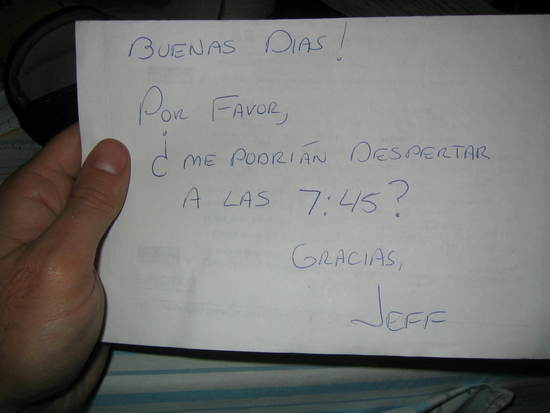 BUENAS DIAS!
POR FAVOR,
¿ ME PODRIÁN DESPERTAR
A LAS 7:45?
GRACIAS,
JEFF